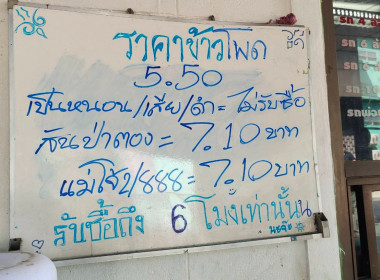 ราคาข้าวโพด
5.50
เป็นหนอน/เสีย/ดำ = ไม่รับซื้อ
สันป่าตอง = 7.10 บาท
แม่โจ้2/888 = 7.10 บาท
รับซื้อถึง 6 โมงเท่านั้นน
รถ 4
รถ 6